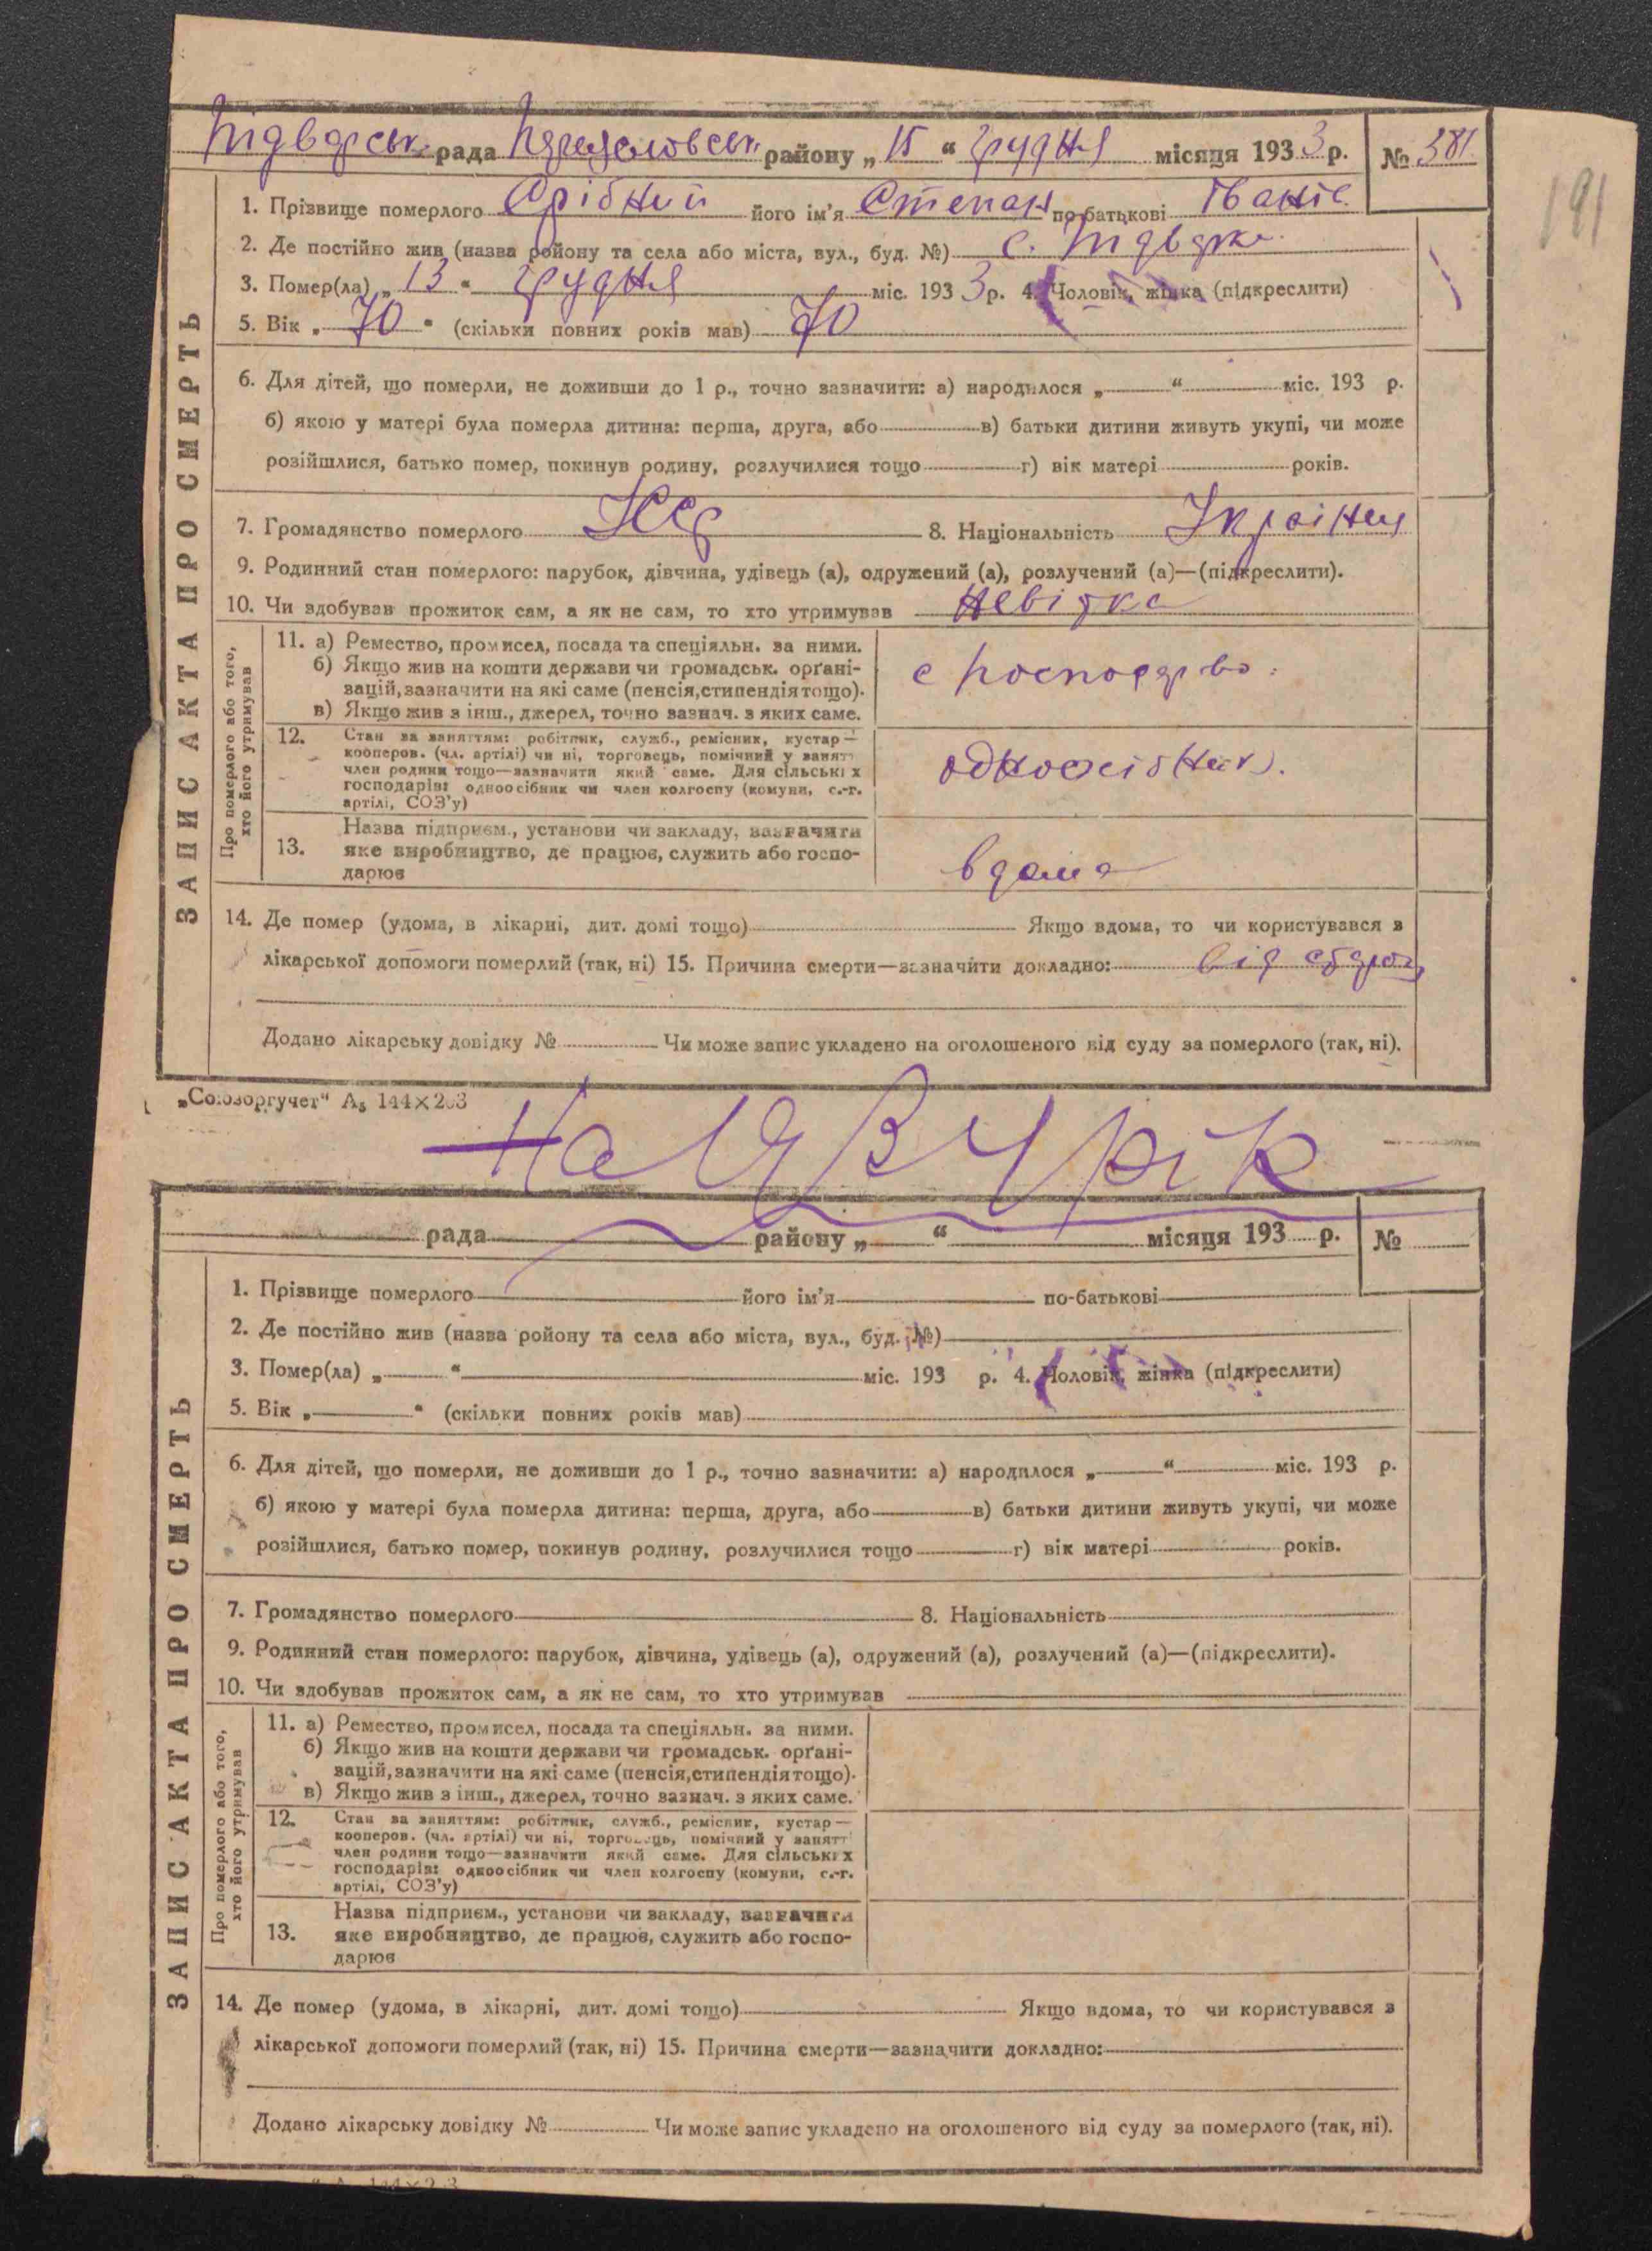 Підварськ. рада Переяславськ району „15“ грудня місяця 1933 р. № 381
191
1. Прізвище померлого Срібний його ім'я Степан по батькові Іваніє
2. Де постійно жив (назва ройону та села або міста, вул., буд. №) с. Підварки
3. Помер(ла) „13“ грудня міс. 1933 р. 4. Чоловік, жінка (підкреслити)
5. Вік „70“ (скільки повних років мав) 70
6. Для дітей, що померли, не доживши до 1 р., точно зазначити: а) народилося „ “ міс. 193 р.
б) якою у матері була померла дитина: перша, друга, або в) батьки дитини живуть укупі, чи може
розійшлися, батько помер, покинув родину, розлучилися тощо г) вік матері років.
7. Громадянство померлого УССР 8. Національність Україн
9. Родинний стан померлого: парубок, дівчина, удівець (а), одружений (а), розлучений (а)—(підкреслити).
10. Чи здобував прожиток сам, а як не сам, то хто утримував невістка
Про померлого або того, хто його утримував
11. а) Ремество, промисел, посада та спеціяльн. за ними.
б) Якщо жив на кошти держави чи громадськ. орґані-
зацій, зазначити на які саме (пенсія, стипендія тощо).
в) Якщо жив з інш., джерел, точно зазнач. з яких саме.
с господарство.
12. Стан за заняттям: робітник, служб., ремісник, кустар—
кооперов. (чл. артілі) чи ні, торговець, помічний у занятт
член родини тощо—зазначити який саме. Для сільських
господарів: одноосібник чи член колгоспу (комуни, с.-г.
артілі, СОЗ'у)
одноосібник.
13. Назва підприєм., установи чи закладу, зазначити
яке виробництво, де працює, служить або госпо-
дарює
вдома
14. Де помер (удома, в лікарні, дит. домі тощо) Якщо вдома, то чи користувався з
лікарської допомоги померлий (так, ні) 15. Причина смерти—зазначити докладно: від старощ
Додано лікарську довідку № Чи може запис укладено на оголошеного від суду за померлого (так, ні).
ЗАПИС АКТА ПРО СМЕРТЬ
„Союзоргучет“ А5 144×203
рада району „ “ місяця 193 р. №
1. Прізвище померлого його ім'я по-батькові
2. Де постійно жив (назва ройону та села або міста, вул., буд. №)
3. Помер(ла) „ “ міс. 193 р. 4. Чоловік, жінка (підкреслити)
5. Вік „ “ (скільки повних років мав)
6. Для дітей, що померли, не доживши до 1 р., точно зазначити: а) народилося „ “ міс. 193 р.
б) якою у матері була померла дитина: перша, друга, або в) батьки дитини живуть укупі, чи може
розійшлися, батько помер, покинув родину, розлучилися тощо г) вік матері років.
7. Громадянство померлого 8. Національність
9. Родинний стан померлого: парубок, дівчина, удівець (а), одружений (а), розлучений (а)—(підкреслити).
10. Чи здобував прожиток сам, а як не сам, то хто утримував
Про померлого або того, хто його утримував
11. а) Ремество, промисел, посада та спеціяльн. за ними.
б) Якщо жив на кошти держави чи громадськ. орґані-
зацій, зазначити на які саме (пенсія, стипендія тощо).
в) Якщо жив з інш., джерел, точно зазнач. з яких саме.
12. Стан за заняттям: робітник, служб., ремісник, кустар—
кооперов. (чл. артілі) чи ні, торговець, помічний у занятт
член родини тощо—зазначити який саме. Для сільських
господарів: одноосібник чи член колгоспу (комуни, с.-г.
артілі, СОЗ'у)
13. Назва підприєм., установи чи закладу, зазначити
яке виробництво, де працює, служить або госпо-
дарює
14. Де помер (удома, в лікарні, дит. домі тощо) Якщо вдома, то чи користувався з
лікарської допомоги померлий (так, ні) 15. Причина смерти—зазначити докладно:
Додано лікарську довідку № Чи може запис укладено на оголошеного від суду за померлого (так, ні).
ЗАПИС АКТА ПРО СМЕРТЬ